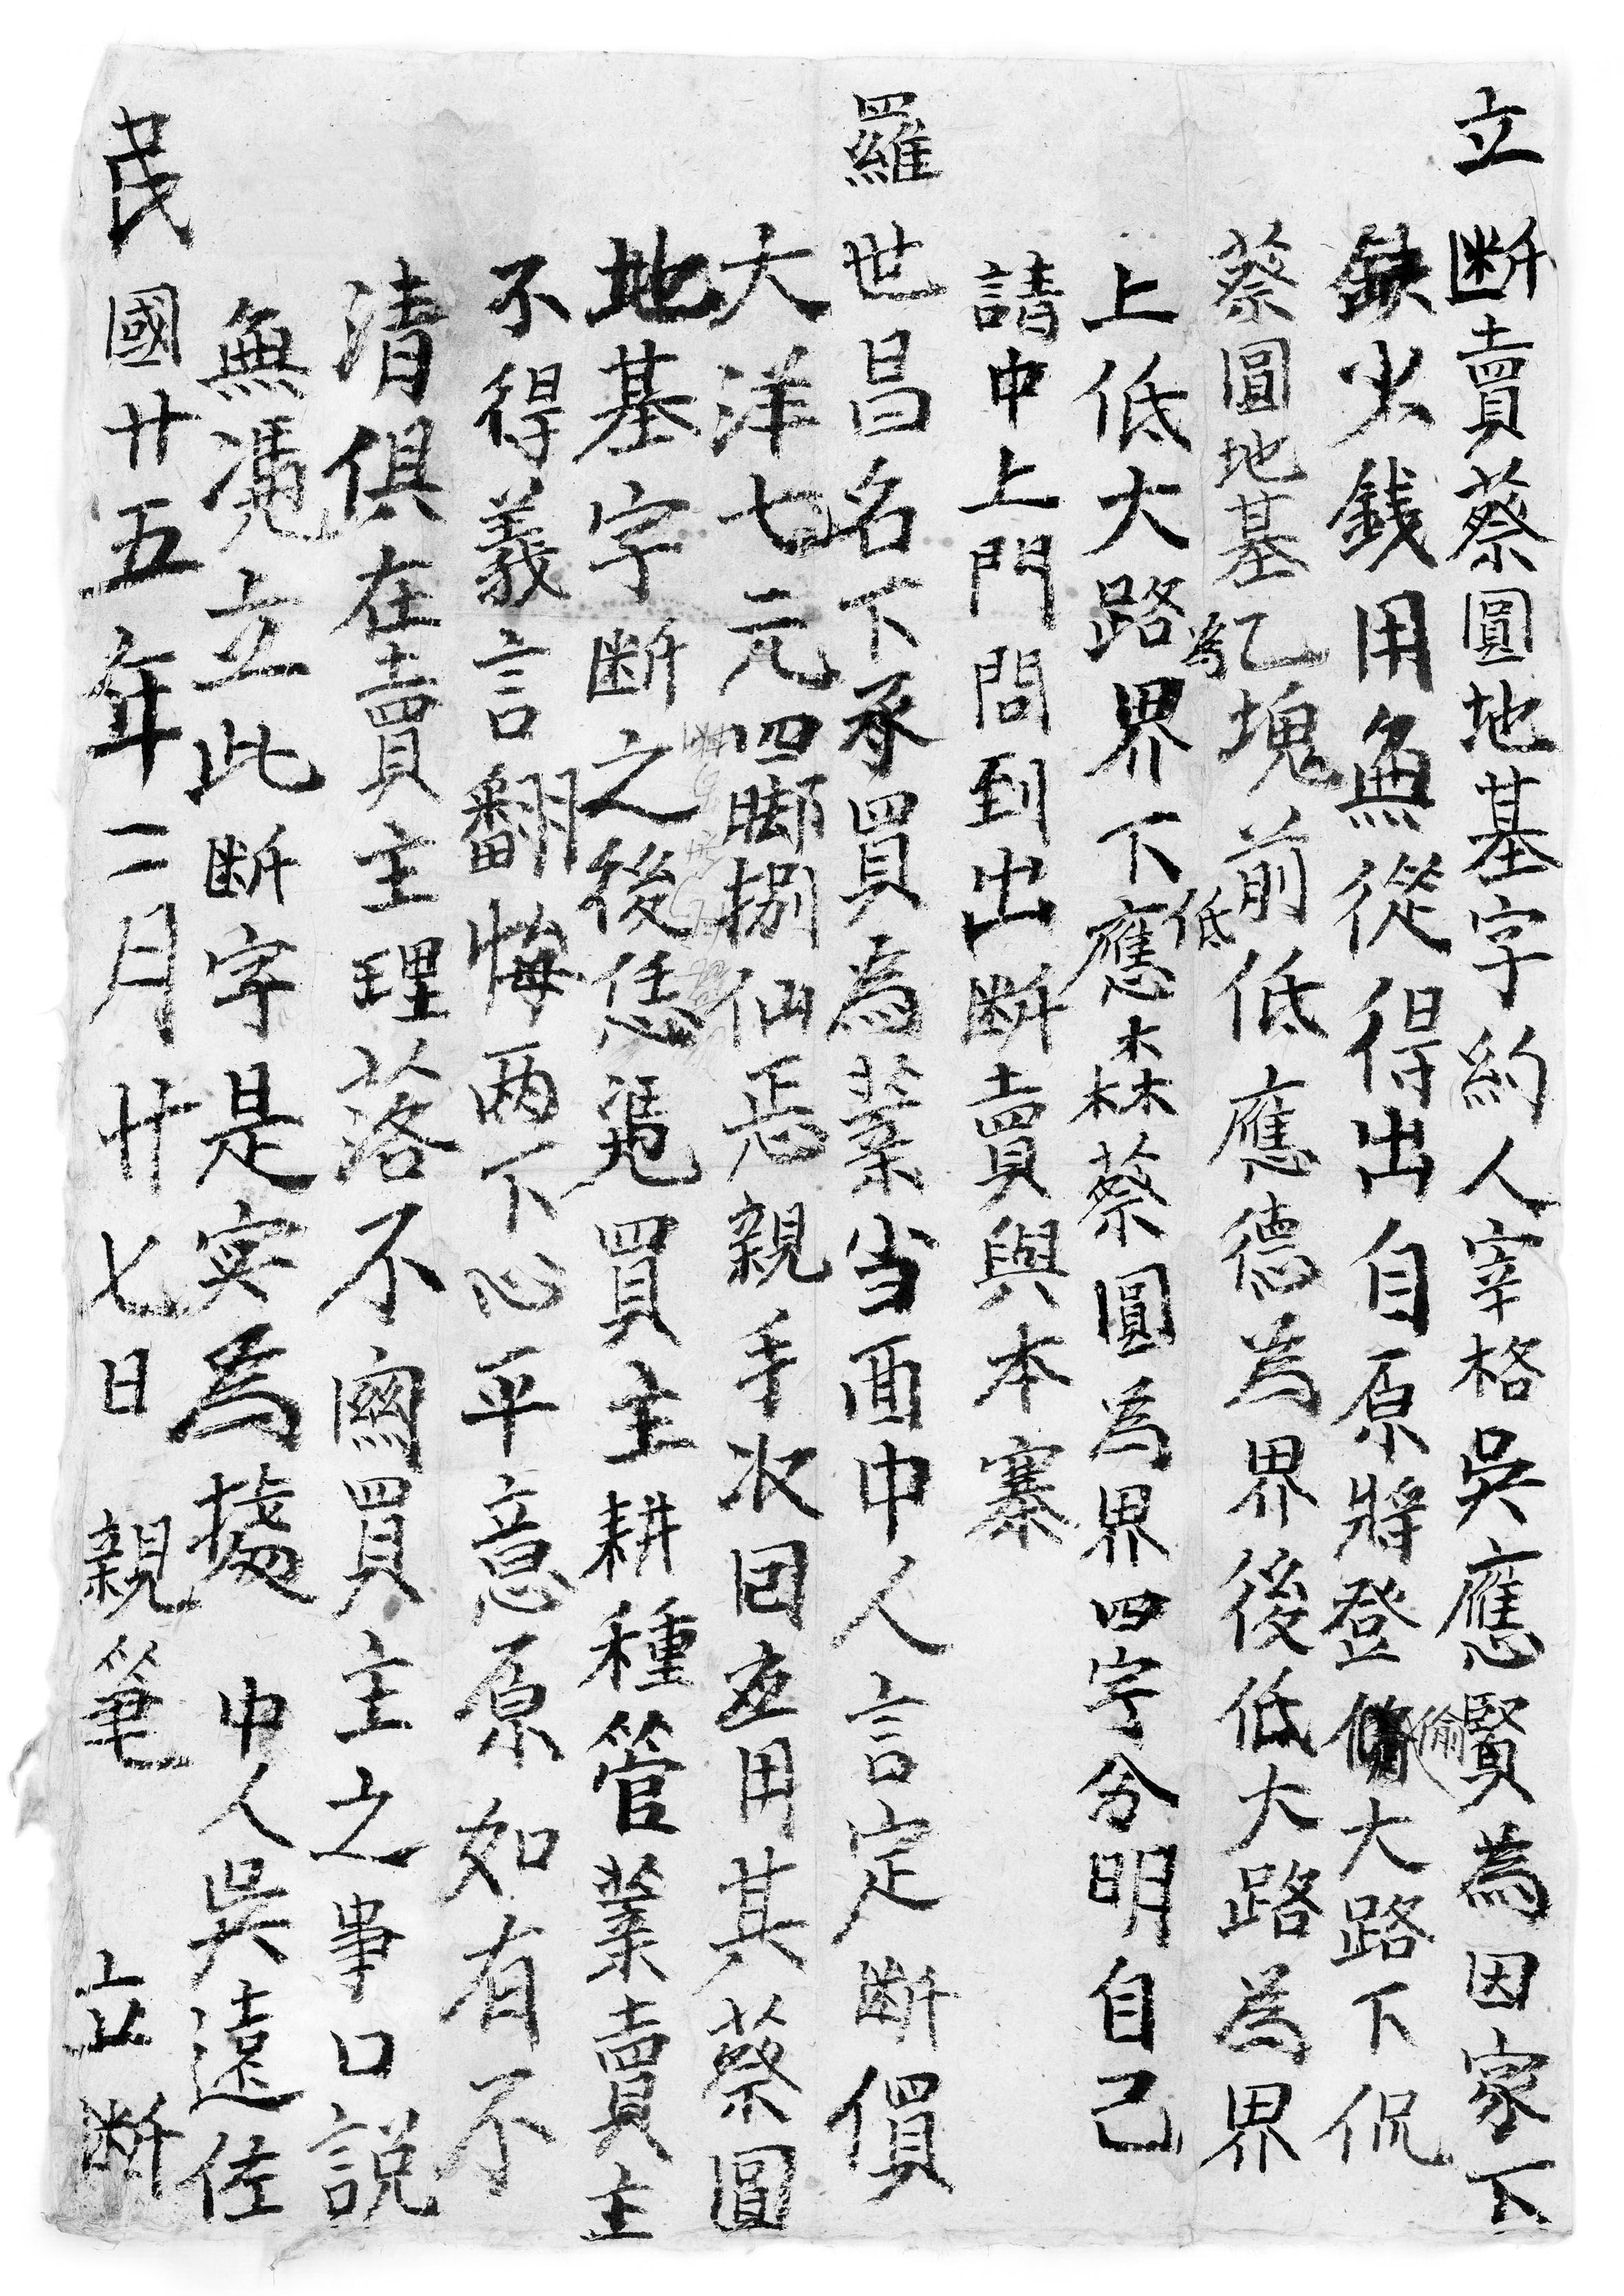 立断賣蔡圓地基字約人宰格吳應賢為因家下
缺少銭用無從得出自原將登偷大路下侃
蔡圓地基乙塊前低應德為界後低大路為界
為
低
上低大路界下應森蔡圓為界四字分明自己
請中上門問到出断賣與本寨
羅世昌名下承買為業当面中人言定断價
大洋七元四脚捌仙正親手收回應用其蔡圓
地基字断之後恁凴買主耕種管業賣主
不得義言翻悔两下心平意原如有不
清俱在賣主理落不関買主之事口説
無凴立此断字是实為據 中人吳遠佐
民國廿五年三月廿七日 親筆 立断